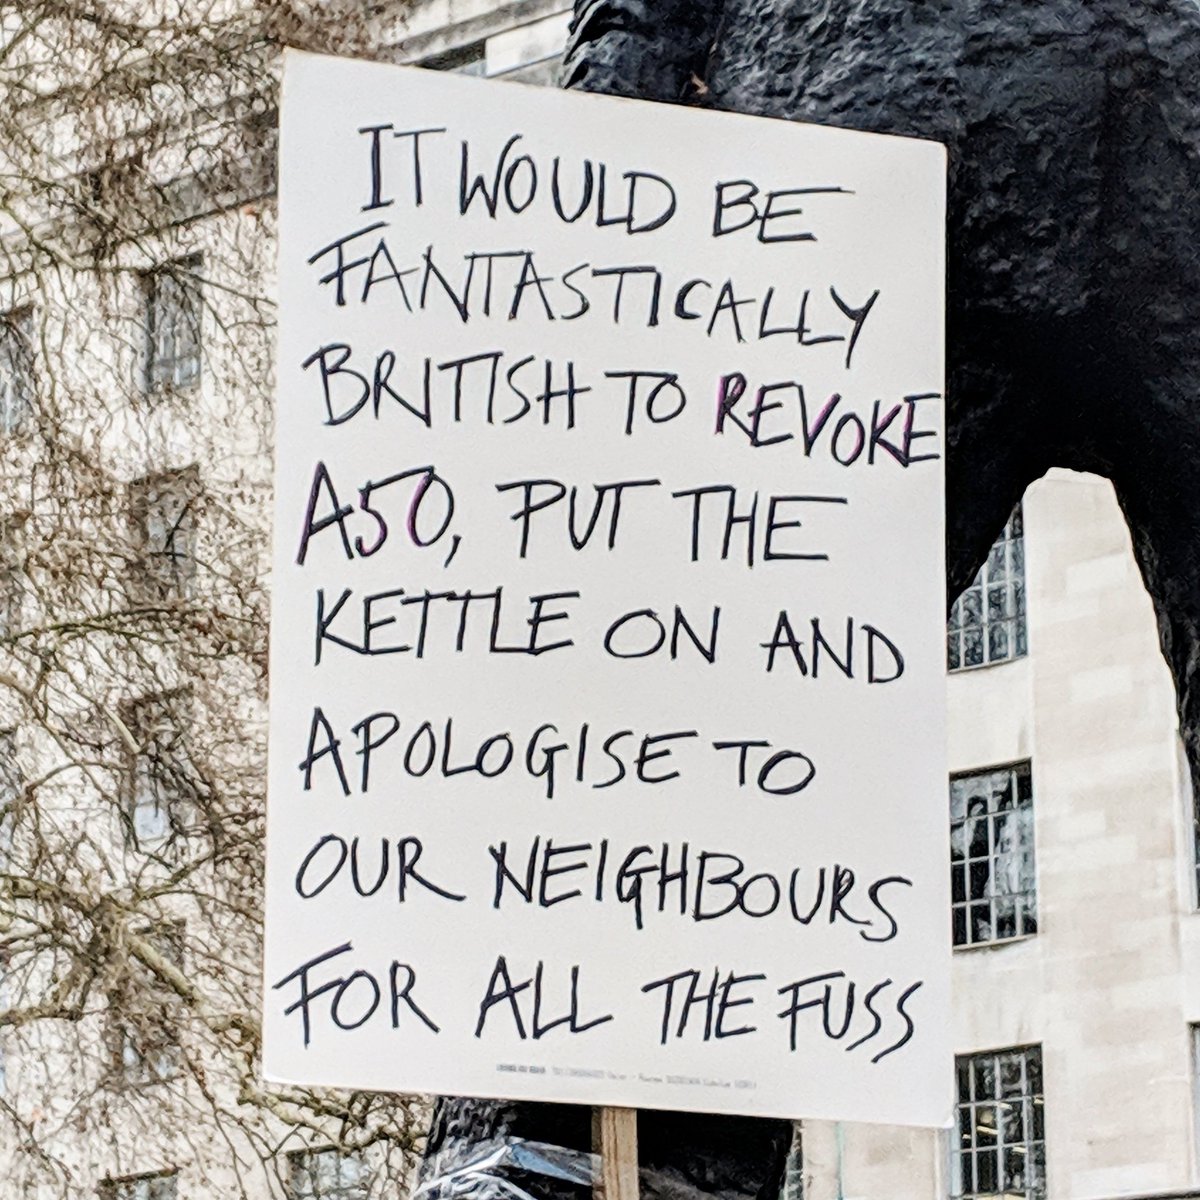 IT WOULD BE
FANTASTICALLY
BRITISH TO REVOKE
A50, PUT THE
KETTLE ON AND
APOLOGISE TO
OUR NEIGHBOURS
FOR ALL THE FUSS